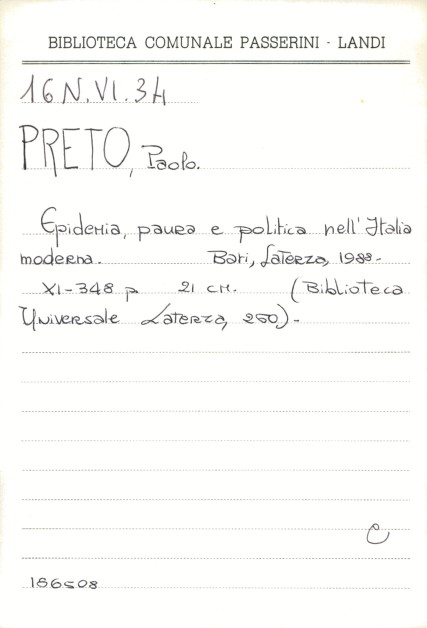 BIBLIOTECA COMUNALE PASSERINI - LANDI
16 N.VI.34
PRETO, Paolo.
Epidemia, paura e politica nell'Italia
moderna. Bari, Laterza, 1988-
XI-348 p 21 cm. (Biblioteca
Universale Laterza, 250)-
C